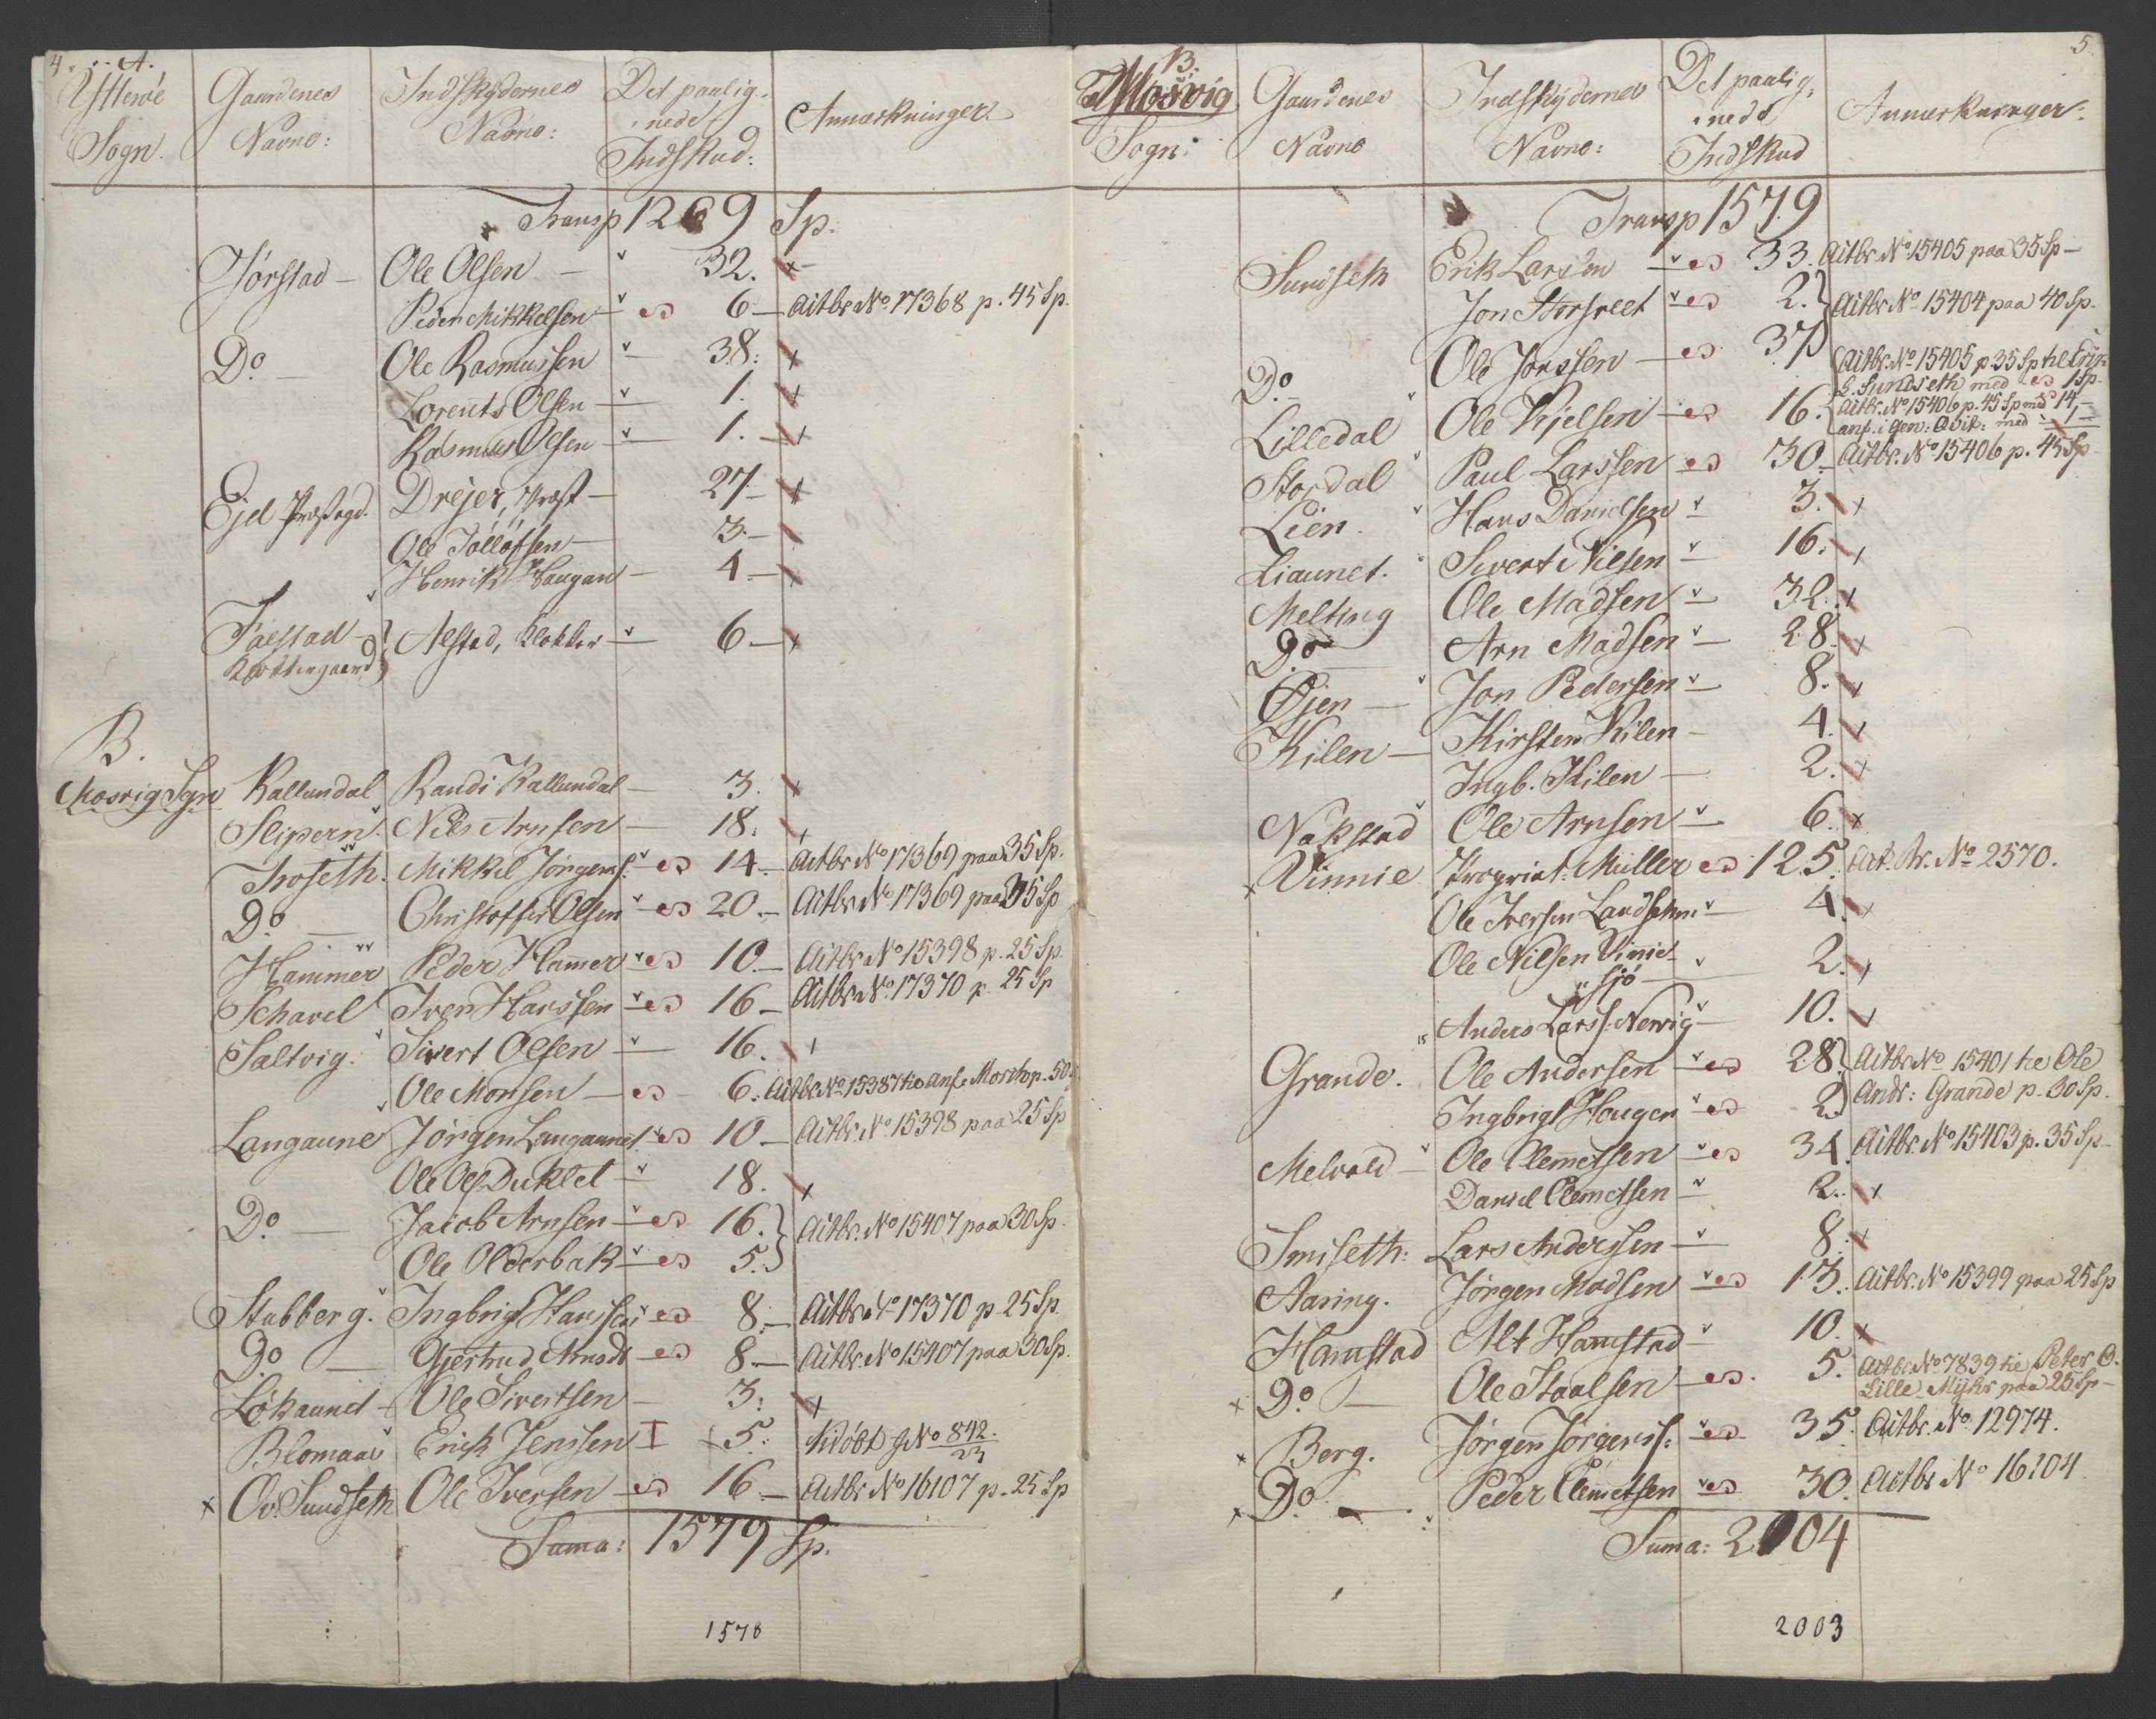 4. A.
Ytterøe Sogn. Gaardenes Navne: Indskydernes Navne: Det paalignede Indskud: Anmærkninger.
Transp 1269 Sp.
Jørstad — Ole Olsen — 32. x
Peder Mikkelsen 6 — Actbr No 17368 p. 45 Sp.
Do — Ole Rasmussen — 38. x
Lorents Olsen — 1. x
Rasmus Olsen — 1. x
Ejel Præstegd. Drejer, Præst — 27 — x
Ole Tølløfsen — 3. —
Henrik Haugan — 4 — x
Falstad Klokkergaard } Alstad, Klokker — 6 — x
B.
Mosvig Sgn Kallundal Randi Kallundal — 3. x
Slipern. Nils Arnsen — 18. x
Troseth. Mikkel Jørgens: 14 — Actbr No 17369 paa 35 Sp.
Do — Christoffer Olsen 20 — Actbr No 17369 paa 35 Sp
Hammer Peder Hamer 10 — Actbr No 15398 p. 25 Sp.
Schavel Iver Larssen 16 — Actbr No 17370 p. 25 Sp
Saltvig. Sivert Olsen — 16. x
Ole Monsen — 6. Actbr No 15387 p. 50
Langaune Jørgen Langaunet 10 — Actbr. No 15398 paa 25 Sp
Ole Ols Duklet — 18. x
Do. — Jacob Arnsen — 16. } Actbr. No 15407 paa 30 Sp.
Ole Olderbak — 5. }
Stubberg. Ingbrigt Hanssen 8. — Actbr No 17370 p. 25 Sp.
Do — Gjertrud Arnsdt — 8 — Actbr. No 15407 paa 30 Sp.
Løkaunet — Ole Sivertsen — 3. x
Blomaas Erich Jenssen 5. No 842. / 23
x Ov. Sundseth Ole Iversen — 16 — Actbr No 16107 p. 25 Sp
Suma: 1579 Sp.
1578
5.
B.
Mosvig Sogn. Gaardenes Navne Indskydernes Navne: Det paalignede Indskud Anmærkninger.
Transp 1579
Sundseth Erik Larsen — 33. Actbr No 15405 paa 35 Sp —
Jon Storsveet — 2. } Actbr No 15404 paa 40 Sp.
Do. Ole Jonssen — 37 }
Actbr. No 15405 p. 35 Sp til Erik
L. Sundseth med 1 Sp.
Lilledal Ole Kjelsen — 16. Actbr. No 15406 p. 45 Sp med 14 —
anf. i Gen: Qvit: med 1 —
Stordal Paul Larssen 30 — Actbr. No 15406 p. 45 Sp
Lien. Hans Danielsen 3. x
Liaunet. Sivert Nilsen — 16. x
Melting Ole Madsen — 32. x
Do Arn Madsen — 28. x
Øjen — Jon Pedersen — 8. x
Kilen — Kirsten Kilen — 4. x
Ingb. Kilen — 2. x
Nakstad Ole Arnsen — 6. x
x Vinnie Propriat: Müller 125. Act. br. No 2570.
Ole Iversen Landsem — 4. x
Ole Nilsen Vinnie
sjö — 2. x
Anders Larss. Nervig — 10. x
Grande. Ole Andersen — 28. } Actbr No 15401 til Ole
Ingbrigt Hougen 2. } Andr: Grande p. 30 Sp.
Melvold — Ole Clemetsen — 34. Actbr. No 15403 p. 35 Sp —
Daniel Clemetsen — 2. x
Smiseth: Lars Anderssen — 8. x
Aasing. Jørgen Madsen — 13. Actbr. No 15399 paa 25 Sp
Hamstad Alt Hamstad — 10. x
x Do — Ole Staalsen — 5. Actbr. No 7839 til Peter O.
Lille Myhr paa 25 Sp —
x Berg. Jørgen Jørgenss: 35. Actbr. No. 12974.
x Do. — Peder Clemetsen 30. Actbr No 16204
Suma: 2004
2003